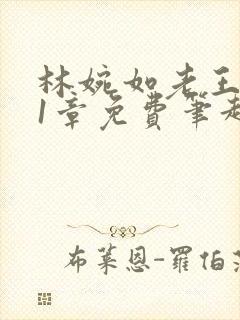 林婉如老王
1章免费笔趣
布莱恩-罗伯